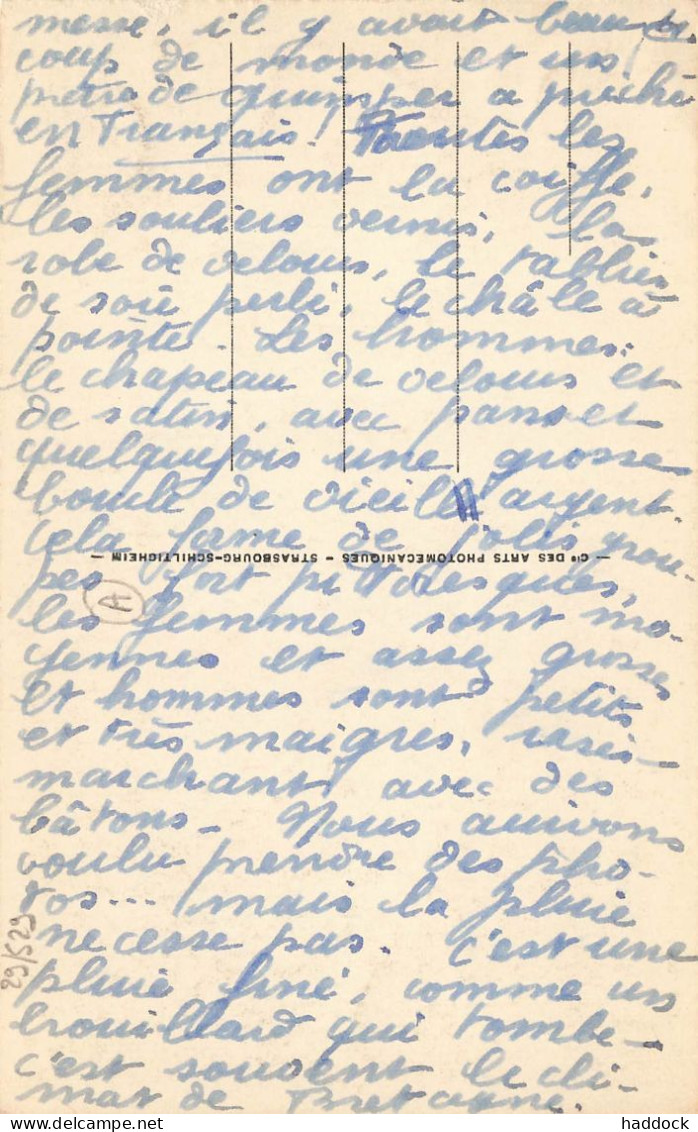 messe, il y avait beau-
coup de monde et un
prêtre de quimper a prêché
en Français! Toutes les
femmes ont la coiffe,
les souliers vernis, la
robe de velours, le tablier
de soie perlé, le châle à
pointe. Les hommes:
le chapeau de velours et
de satin, avec pans et
quelquefois une grosse
boucle de vieil argent.
Cela forme de jolis grou-
— Cie DES ARTS PHOTOMECANIQUES - STRASBOURG-SCHILTIGHEIM —
pes fort pittoresques,
A
les femmes sont mo-
yennes et assez grosses
et hommes sont petits
et très maigres, rasés -
marchant avec des
bâtons - Nous aurions
voulu prendre des pho-
tos... mais la pluie
ne cesse pas. C'est une
29/529
pluie fine, comme un
brouillard qui tombe -
c'est souvent le cli-
mat de Bretagne.
haddock